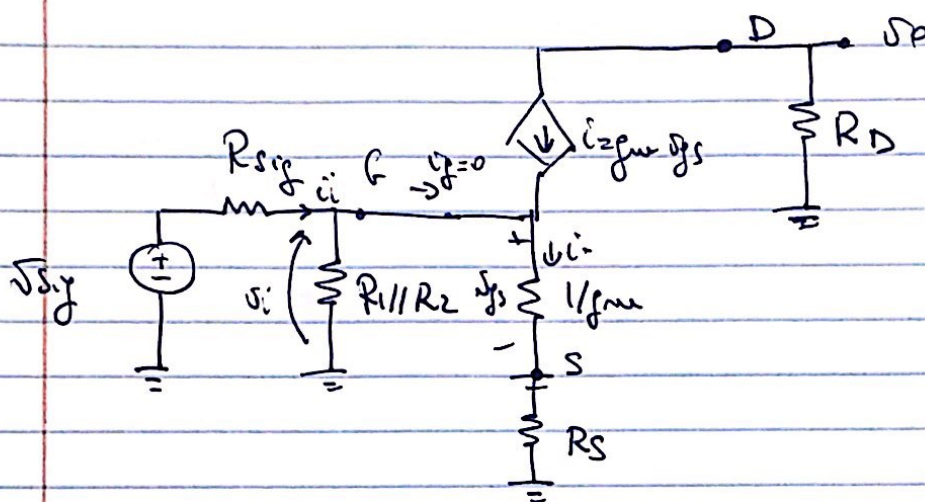 D
vo
RD
i=gm vgs
Rsig
ii
G
→ ig=0
+
↓i
vsig
+
-
vi
R1//R2
vgs
1/gm
-
S
RS